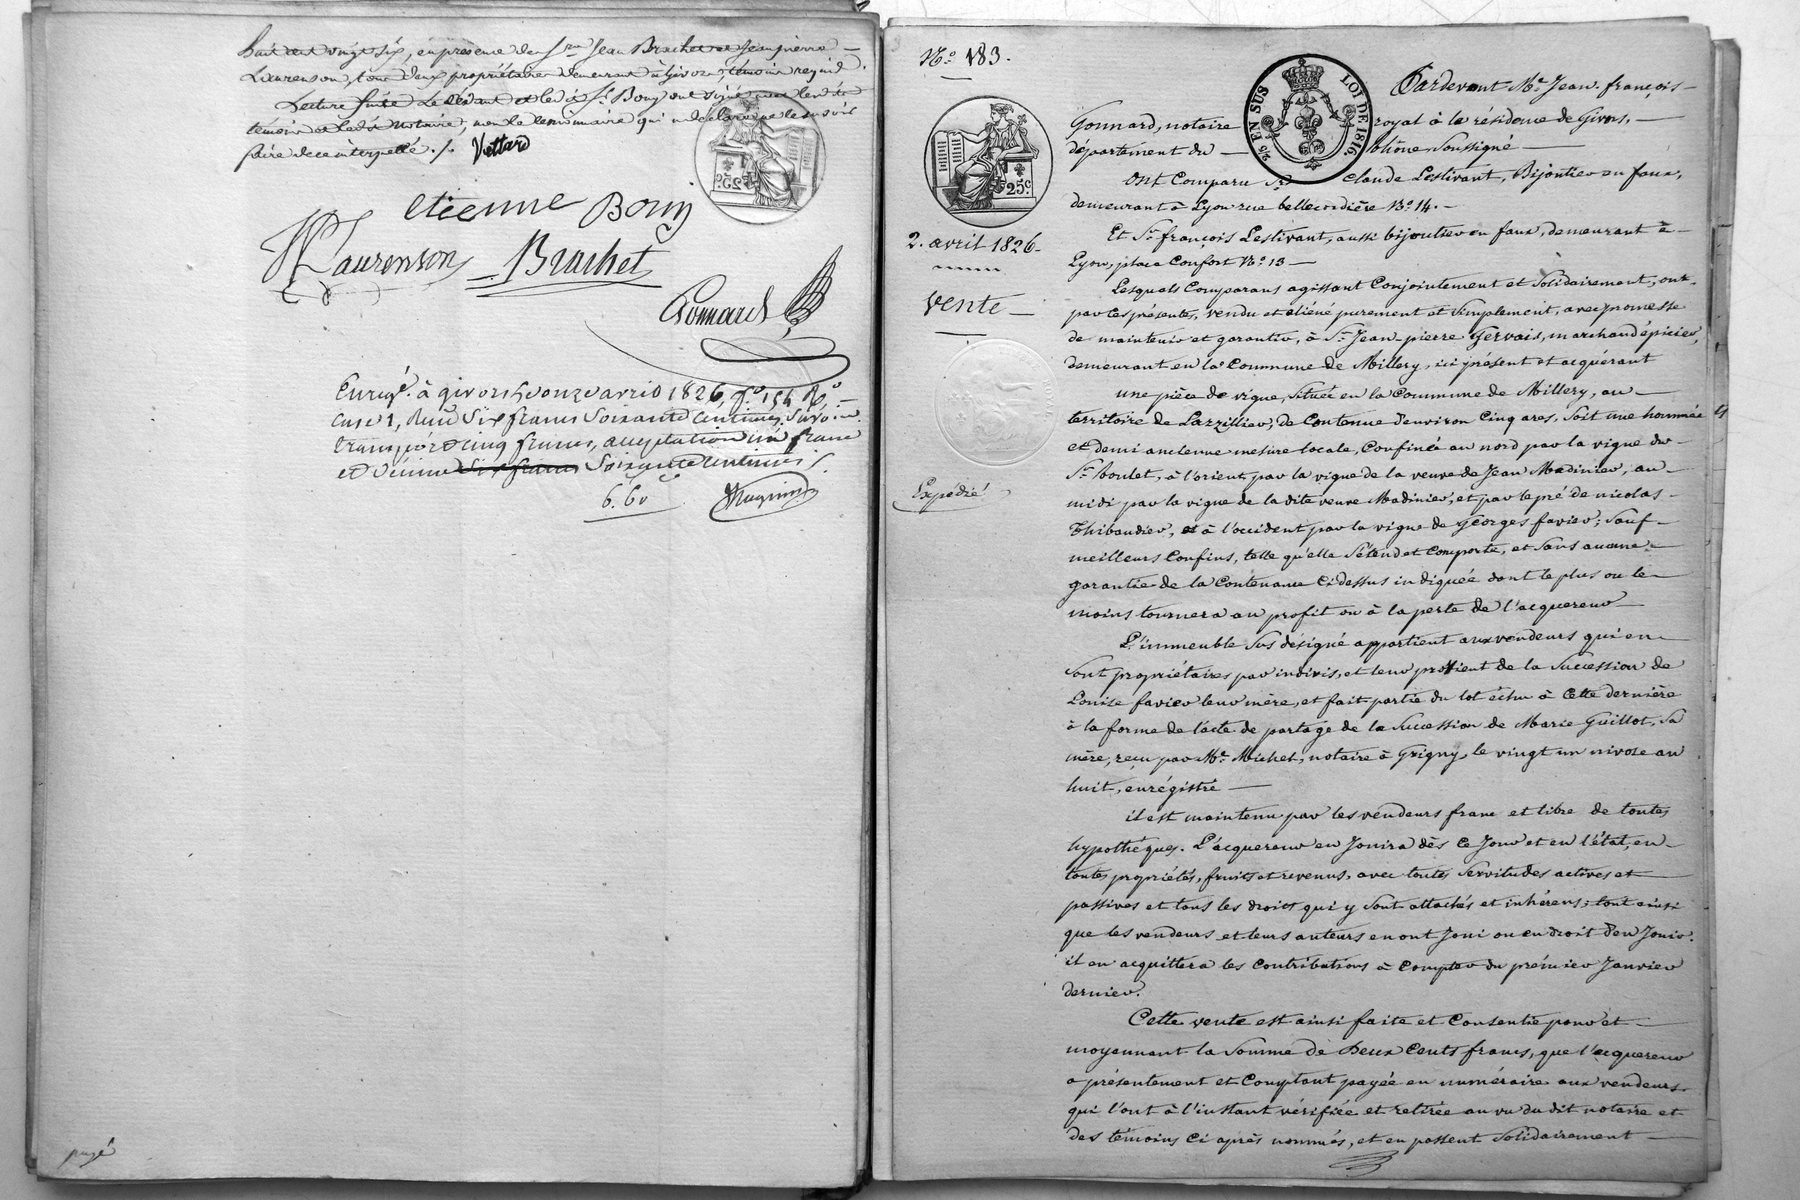 huit cent vingt six, en presence de Srs Jean Brachet et Jean pierre
Laurenson, tous deux propriétaires demeurant à Givors, témoins requis.
Lecture faite le cédant et ledit Sr Bony ont signé avec les
témoins et ledit Notaire, non le cessionnaire qui a déclaré ne le savoir
faire de ce interpellé ./. Vettard
etienne Bony
JP Laurenson Brachet
Gonnard
Enregé à givors le onze avril 1826, fo 154 Ro
case 1, Reçu Six francs Soixante Centimes, Savoir
transport cinq francs, acceptation un franc
et décime Six francs Soixante Centimes
6. 60
payé
No 183.
25c
2. avril 1826
Vente
Expédié
2/5 EN SUS LOI DE 1816
Pardevant Me Jean françois
Gonnard, notaire royal à la résidence de Givors,
département du Rhône Soussigné
Ont Comparu Sr Claude Lestivant, Bijoutier en faux,
demeurant à Lyon rue bellecordière No 14.
Et Sr françois Lestivant, aussi bijoutier en faux, demeurant à
Lyon, place Confort No 13
Lesquels Comparans agissant Conjointement et Solidairement, ont
par ces présentes, vendu et aliéné purement et Simplement, avec promesse
de maintenir et garantir, à Sr Jean-pierre Gervais, marchand épicier,
demeurant en la Commune de Millery, ici présent et acquérant
une pièce de vigne, Située en la Commune de Millery, au
territoire de Lazzillier, de Contenue d'environ Cinq ares, Soit une hommée
et demi ancienne mesure locale, Confinée au nord par la vigne du
Sr boulet, à l'orient par la vigne de la veuve de Jean Madinier, au
midi par la vigne de la dite veuve Madinier, et par le pré de nicolas
Thibaudier, et à l'occident par la vigne de Georges favier; Sauf
meilleurs Confins, telle qu'elle S'étend et Comporte, et Sans aucune
garantie de la Contenance Ci dessus indiquée dont le plus ou le
moins tournera au profit ou à la perte de l'acquereur
L'immeuble Sus désigné appartient aux vendeurs qui en
Sont propriétaires par indivis, et leur provient de la Succession de
Louise favier leur mère, et fait partie du lot échu à Cette dernière
à la forme de l'acte de partage de la Succession de Marie Guillot, Sa
mère, reçu par Me Michel, notaire à Grigny le vingt un nivose an
huit, enrégistré
il est maintenu par les vendeurs franc et libre de toutes
hypothèques. L'acquereur en Jouira dès Ce Jour et en l'état, en
toutes propriétés, fruits et revenus, avec toutes Servitudes actives et
passives et tous les droits qui y Sont attachés et inhérens; tout ainsi
que les vendeurs et leurs auteurs en ont Joui ou eu droit d'en Jouir.
il en acquittera les Contributions à Compter du prémier Janvier
dernier.
Cette vente est ainsi faite et Consentie pour et
moyennant la Somme de Deux Cents francs, que l'acquereur
a présentement et Comptant payée en numéraire aux vendeurs
qui l'ont à l'instant vérifiée et retirée au vu du dit notaire et
des témoins Ci après nommés, et en passent Solidairement